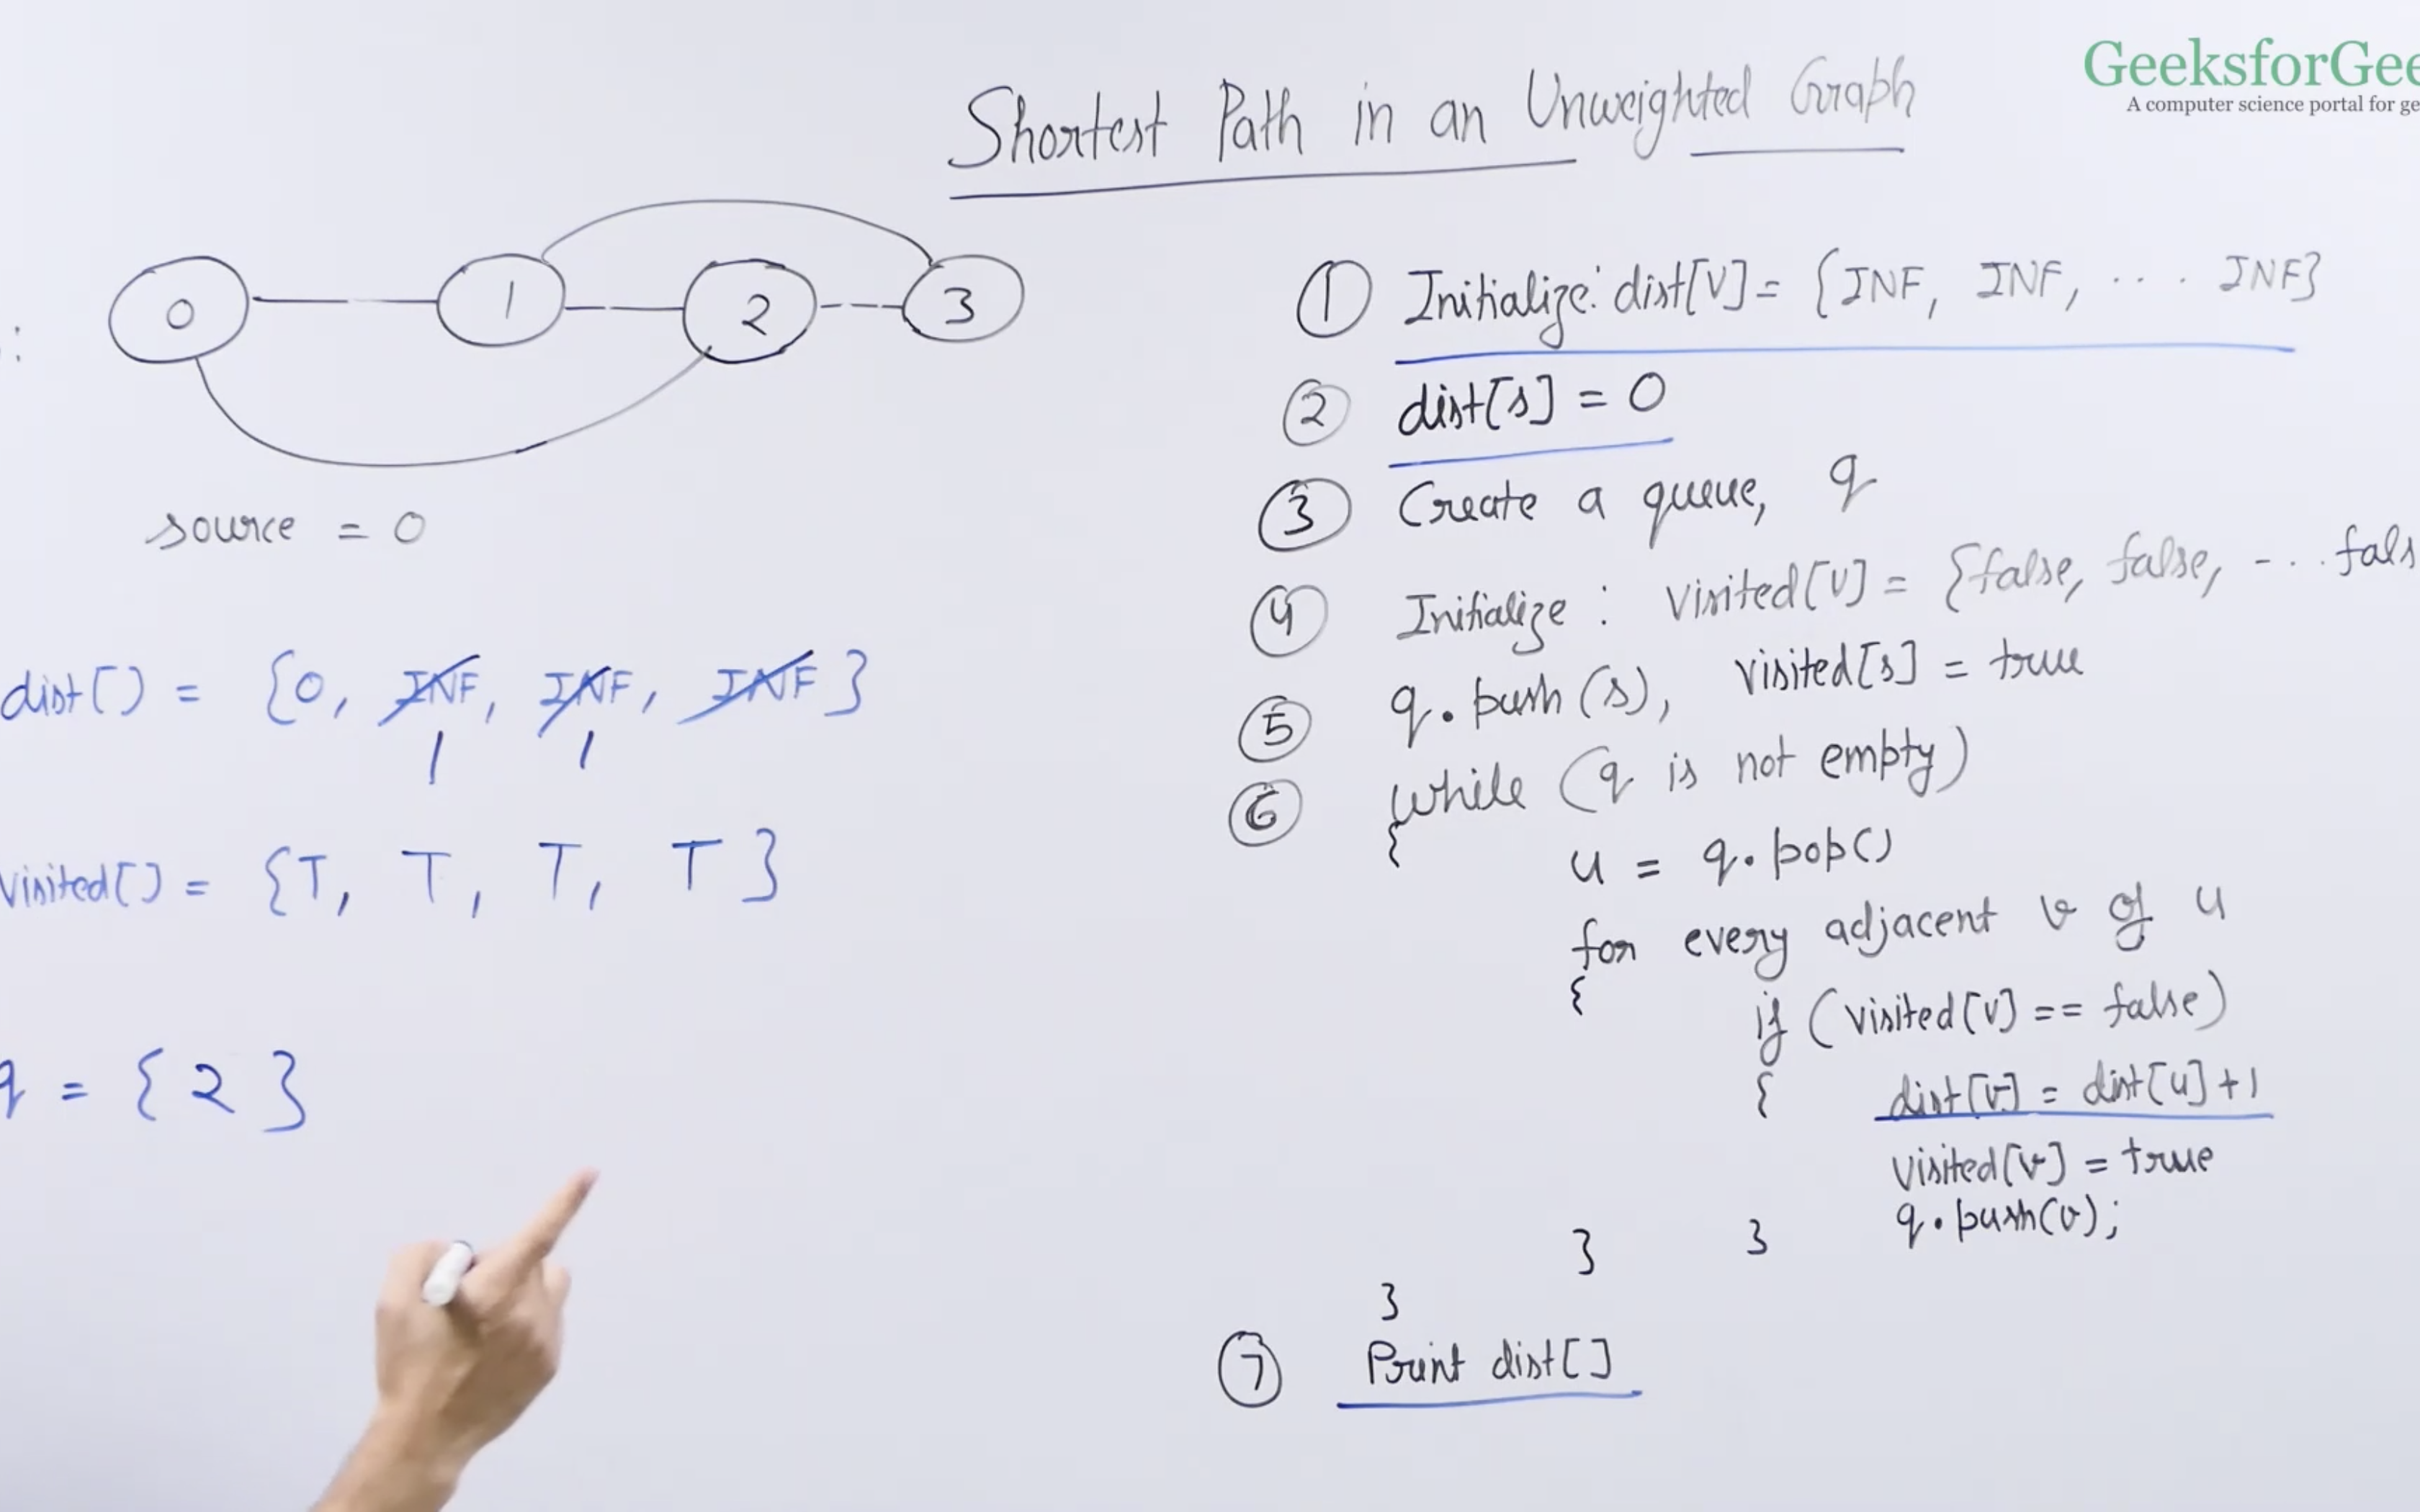 GeeksforGee
A computer science portal for ge
Shortest Path in an Unweighted Graph
0 1 2 3
:
source = 0
dist[] = {0, INF, INF, INF}
1 1
visited[] = {T, T, T, T}
q = {2}
① Initialize: dist[V] = {INF, INF, ... INF}
② dist[s] = 0
③ Create a queue, q
④ Initialize : visited[V] = {false, false, ... fals
⑤ q.push(s), visited[s] = true
⑥ while (q is not empty)
{
u = q.pop()
for every adjacent v of u
{
if (visited[v] == false)
{ dist[v] = dist[u]+1
visited[v] = true
q.push(v);
} }
}
⑦ Print dist[]